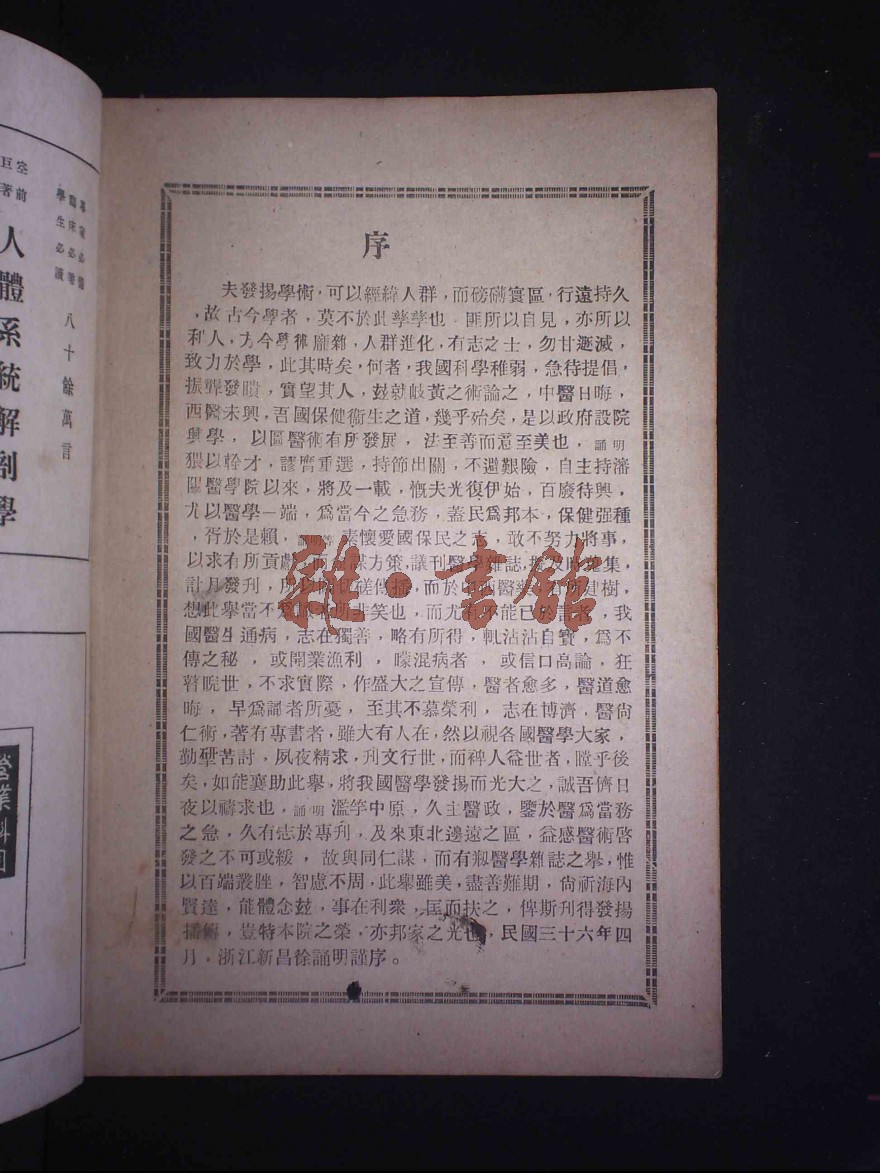 序
夫發揚學術，可以經緯人群，而磅礡寰區，行遠持久
，故古今學者，莫不於此孳孳也 匪所以自見，亦所以
利人，方今學術龐雜，人群進化，有志之士，勿甘遯滅，
致力於學，此其時矣，何者，我國科學稚弱，急待提倡，
振聾發瞶，實望其人，玆就岐黃之術論之，中醫日晦，
西醫未興，吾國保健衞生之道，幾乎殆矣，是以政府設院
興學，以圖醫術有所發展，法至善而意至美也，誦明
猥以輇才，謬膺重選，持節出關，不避艱險，自主持瀋
陽醫學院以來，將及一載，慨夫光復伊始，百廢待興，
尤以醫學一端，爲當今之急務，蓋民爲邦本，保健强種
，胥於是賴，誦明等素懷愛國保民之志，敢不努力將事，
以求有所貢獻，而 謀方策，議刊醫學雜誌，
計月發刊，所以 磋傳播，而於中西醫藥，有所建樹，
想此舉當不爲 者所非笑也，而尤有不能已於言者，我
國醫生通病，志在獨善，略有所得，輒沾沾自寶，爲不
傳之秘，或開業漁利，矇混病者，或信口高論，狂
瞽睨世，不求實際，作盛大之宣傳，醫者愈多，醫道愈
晦，早爲識者所憂，至其不慕榮利，志在博濟，醫尙
仁術，著有專書者，雖大有人在，然以視各國醫學大家，
勤研苦討，夙夜精求，刊文行世，而裨人益世者，瞠乎後
矣，如能襄助此舉，將我國醫學發揚而光大之，誠吾儕日
夜以禱求也，誦明 濫竽中原，久主醫政，鑒於醫爲當務
之急，久有志於專刊，及來東北邊遠之區，益感醫術啓
發之不可或緩，故與同仁謀，而有溆醫學雜誌之舉，惟
以百端叢脞，智慮不周，此舉雖美，盡善難期，尙祈海內
賢達，能體念玆，事在利衆，匡而扶之，俾斯刊得發揚
播 ，豈特本院之榮，亦邦家之光也，民國三十六年四
月，浙江新昌徐誦明謹序。
雜·書館
空前
巨著
專家必備
臨床必需
學生必讀
人體系統解剖學
八十餘萬言
營業科目